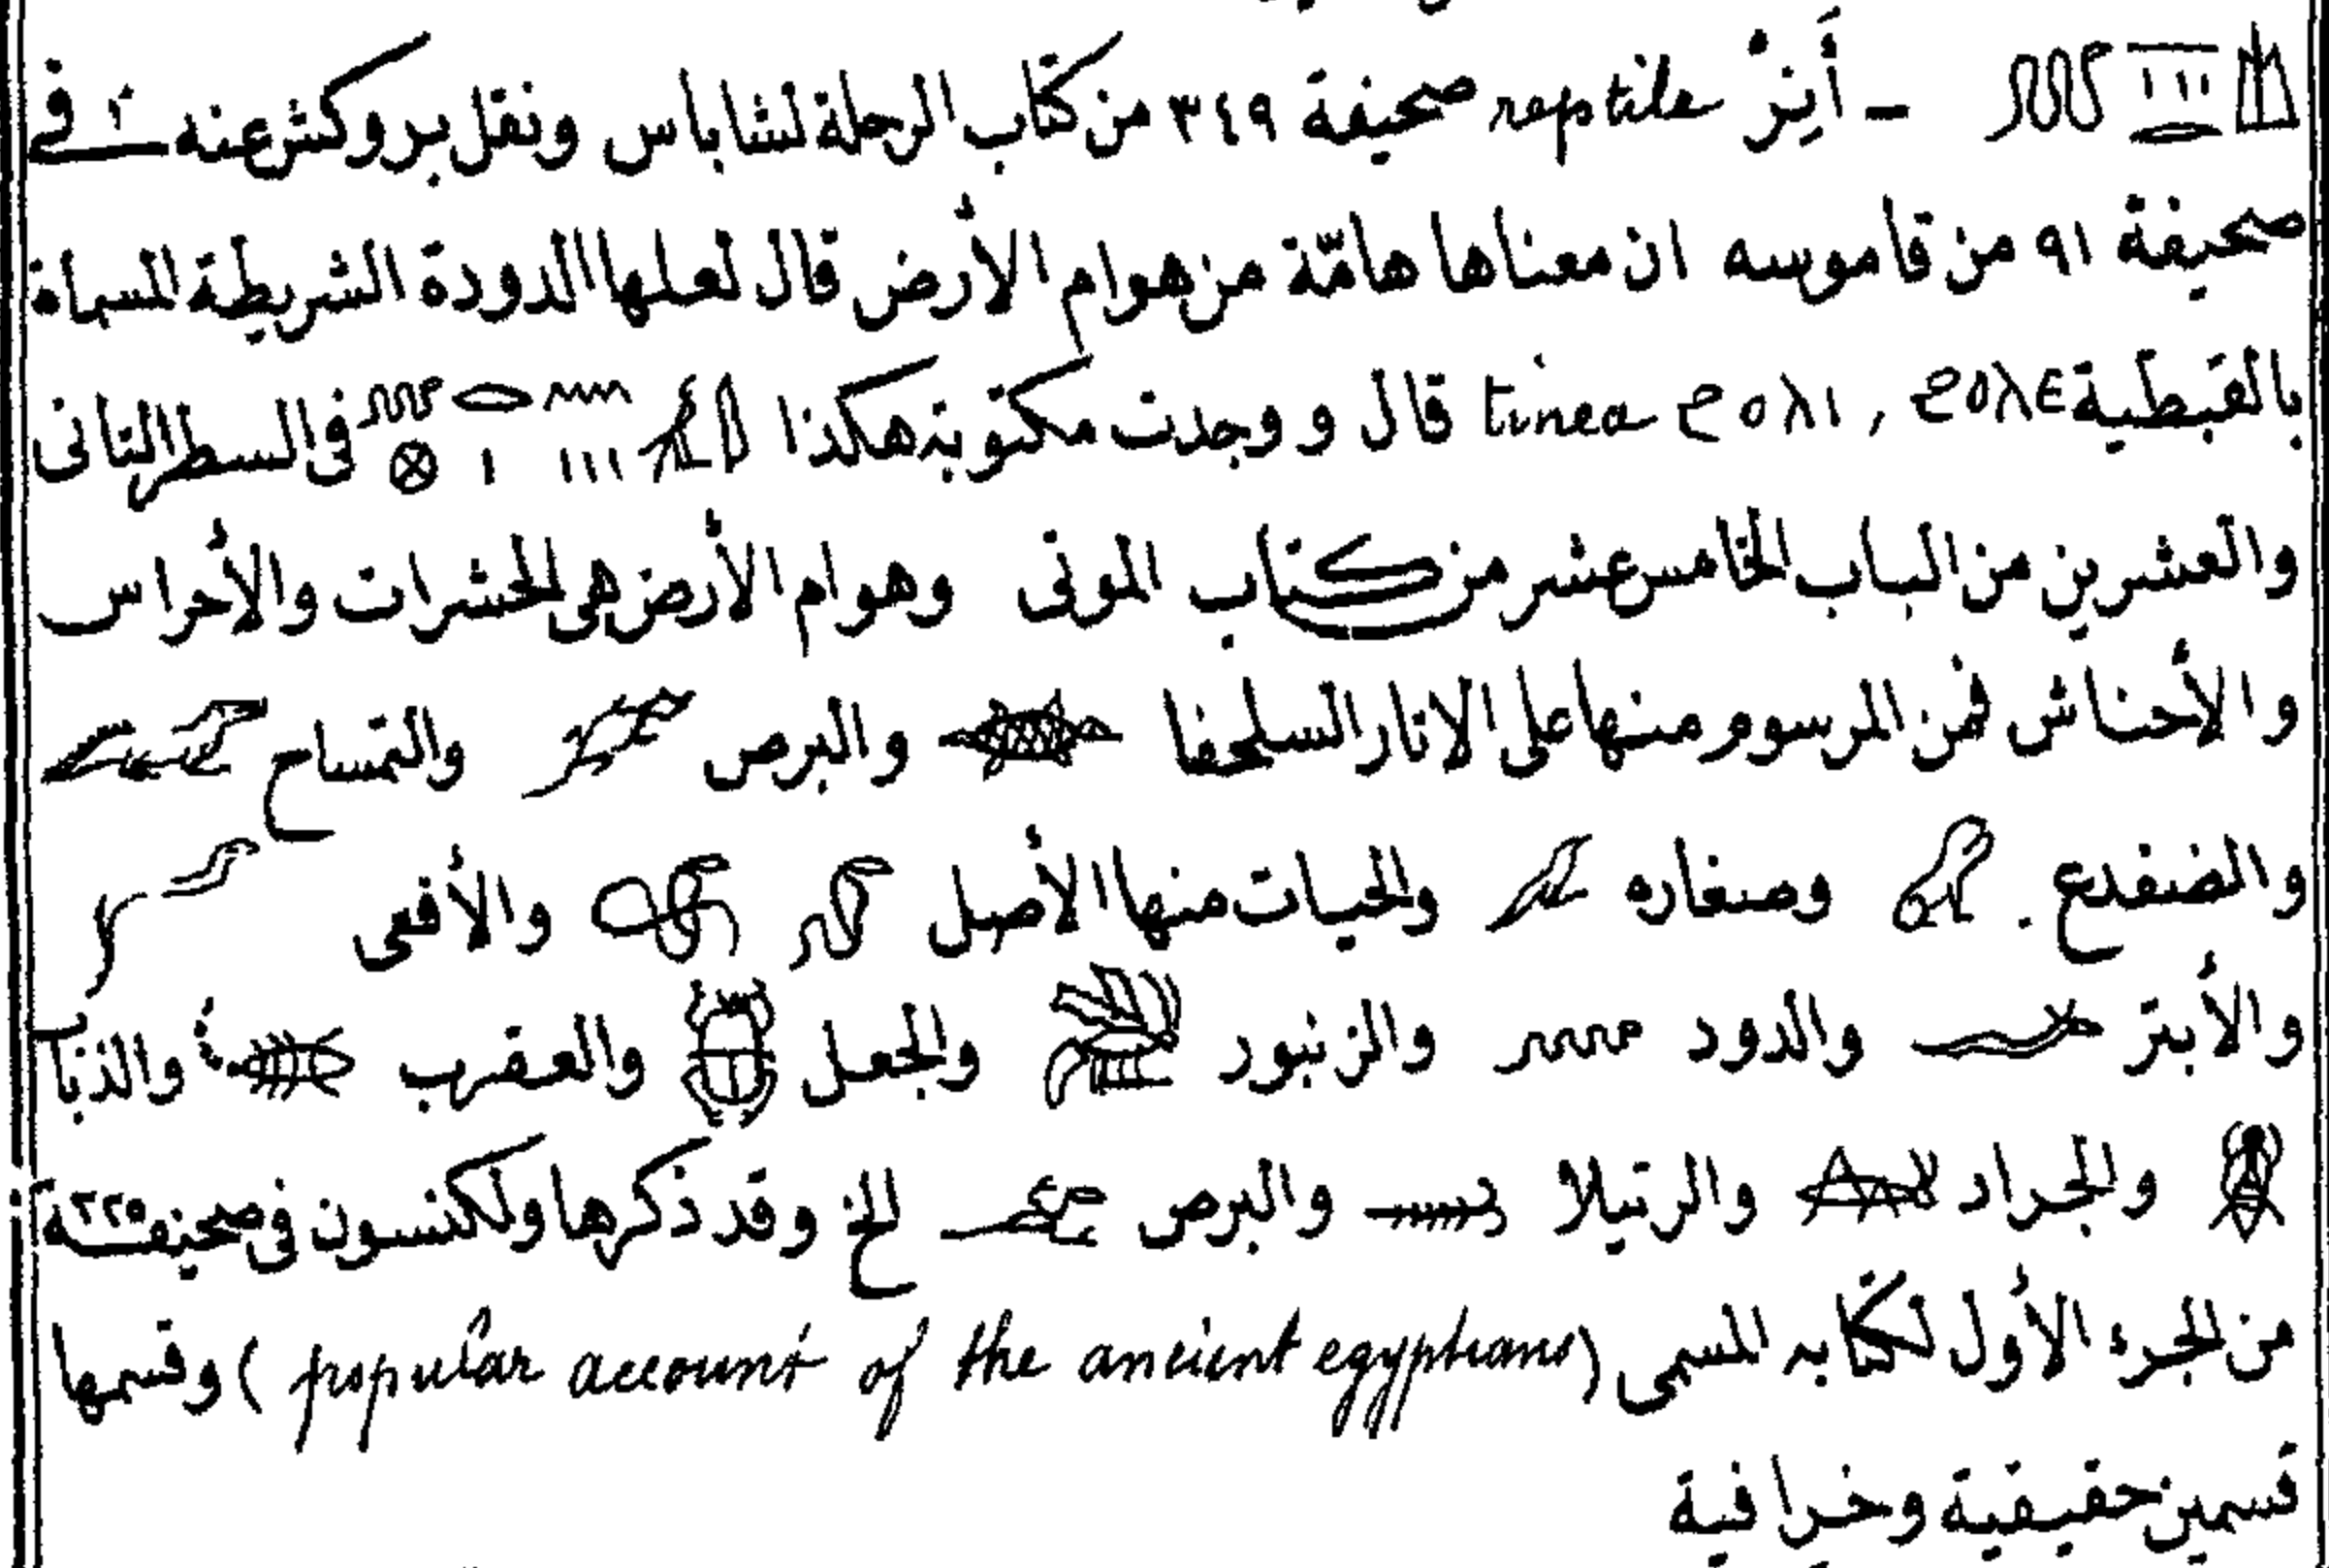 – أَنِرْ reptile صحيفة ٣٤٩ من كتاب الرحلة لشاباس ونقل بروكش عنه فى
صحيفة ٩١ من قاموسه ان معناها هامّة من هوام الأرض قال لعلها الدودة الشريطة المسماة
بالقبطية ϩⲟⲗⲉ , ϩⲟⲗⲓ tinea قال ووجدت مكتوبة هكذا فى السطر الثانى
والعشرين من الباب الخامس عشر من كتاب الموتى وهوام الأرض هى الحشرات والأحراس
والأحناش فمن المرسوم منها على الاثار السلحفا والبرص والتمساح
والضفدع وصغاره والحيات منها الأصل والأفعى
والأبتر والدود والزنبور والجعل والعقرب والذباب
والجراد والرتيلا والبرص الخ وقد ذكرها ولكنسون فى صحيفة ٢٢٥
من الجزء الأول لكتابه المسمى (popular account of the ancient egyptians) وقسمها
قسمين حقيقية وخرافية